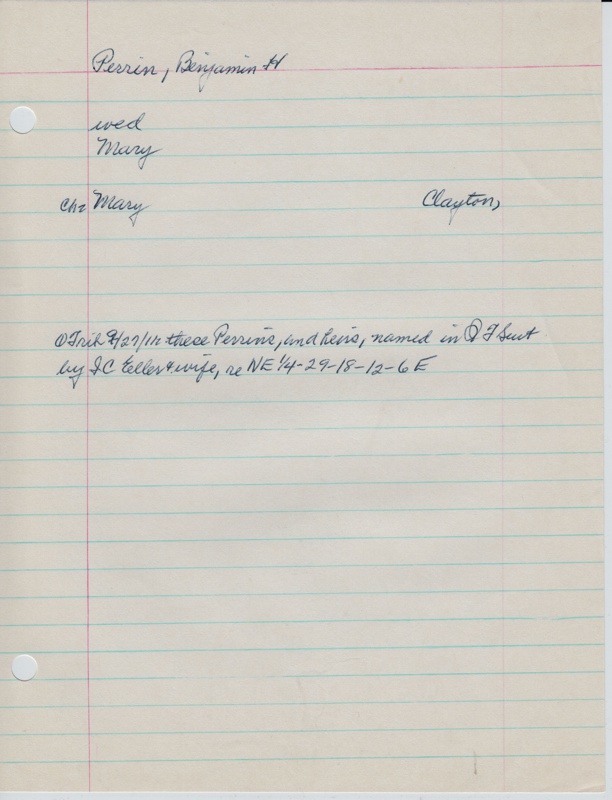 Perrin, Benjamin H
wed
Mary
ch: Mary Clayton,
O Trib 9/27/18 these Perrins, and heirs, named in Q T Suit
by I C Eller & wife, re NE 1/4-29-18-12-6 E